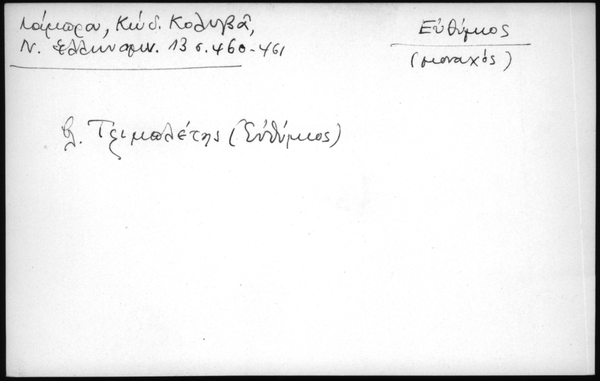 Λάμπρου, Κώδ. Κολυβᾶ,
Ν. Ἑλληνομν. 13 σ. 460-461
Εὐθύμιος
(μοναχός)
βλ. Τζιμπλέτης (Εὐθύμιος)